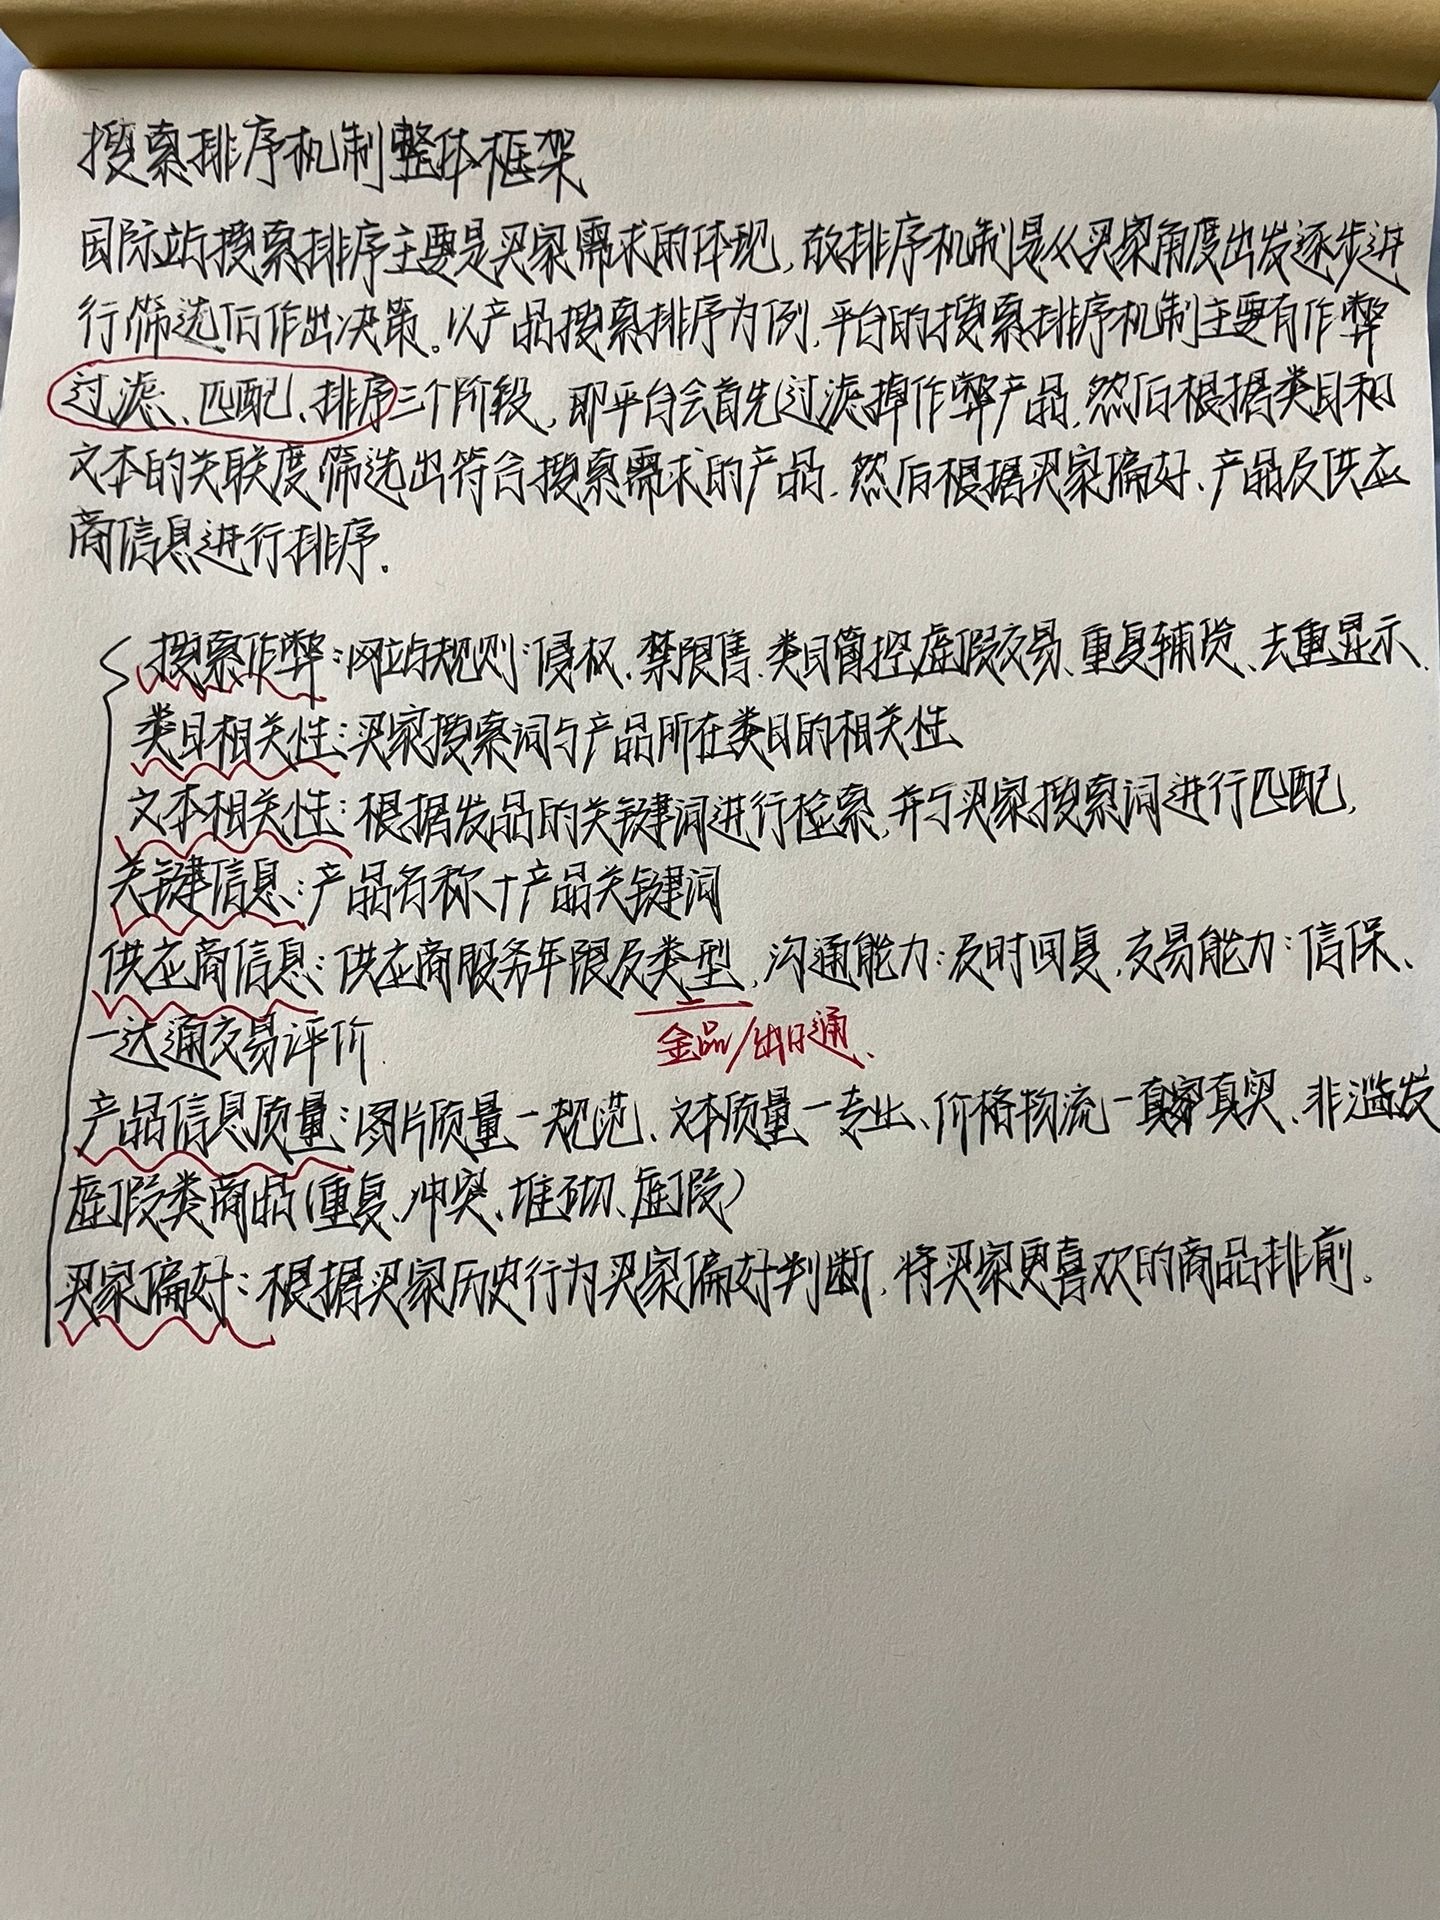 搜索排序机制整体框架
国际站搜索排序主要是买家需求的体现,故排序机制是从买家角度出发逐步进
行筛选后作出决策。以产品搜索排序为例,平台的搜索排序机制主要有作弊
过滤、匹配、排序三个阶段,即平台会首先过滤掉作弊产品,然后根据类目和
文本的关联度筛选出符合搜索需求的产品.然后根据买家偏好、产品及供应
商信息进行排序.
搜索作弊:网站规则:侵权、禁限售、类目管控,虚假交易、重复铺货、去重显示、
类目相关性:买家搜索词与产品所在类目的相关性
文本相关性:根据发品的关键词进行检索,并与买家搜索词进行匹配,
关键信息:产品名称+产品关键词
供应商信息:供应商服务年限及类型,沟通能力:及时回复,交易能力:信保、
金品/出口通、
一达通交易评价
产品信息质量:图片质量一规范、文本质量一专业、价格物流一真实、非滥发
虚假类商品(重复、冲突、堆砌、虚假)
买家偏好:根据买家历史行为买家偏好判断,将买家更喜欢的商品排前。